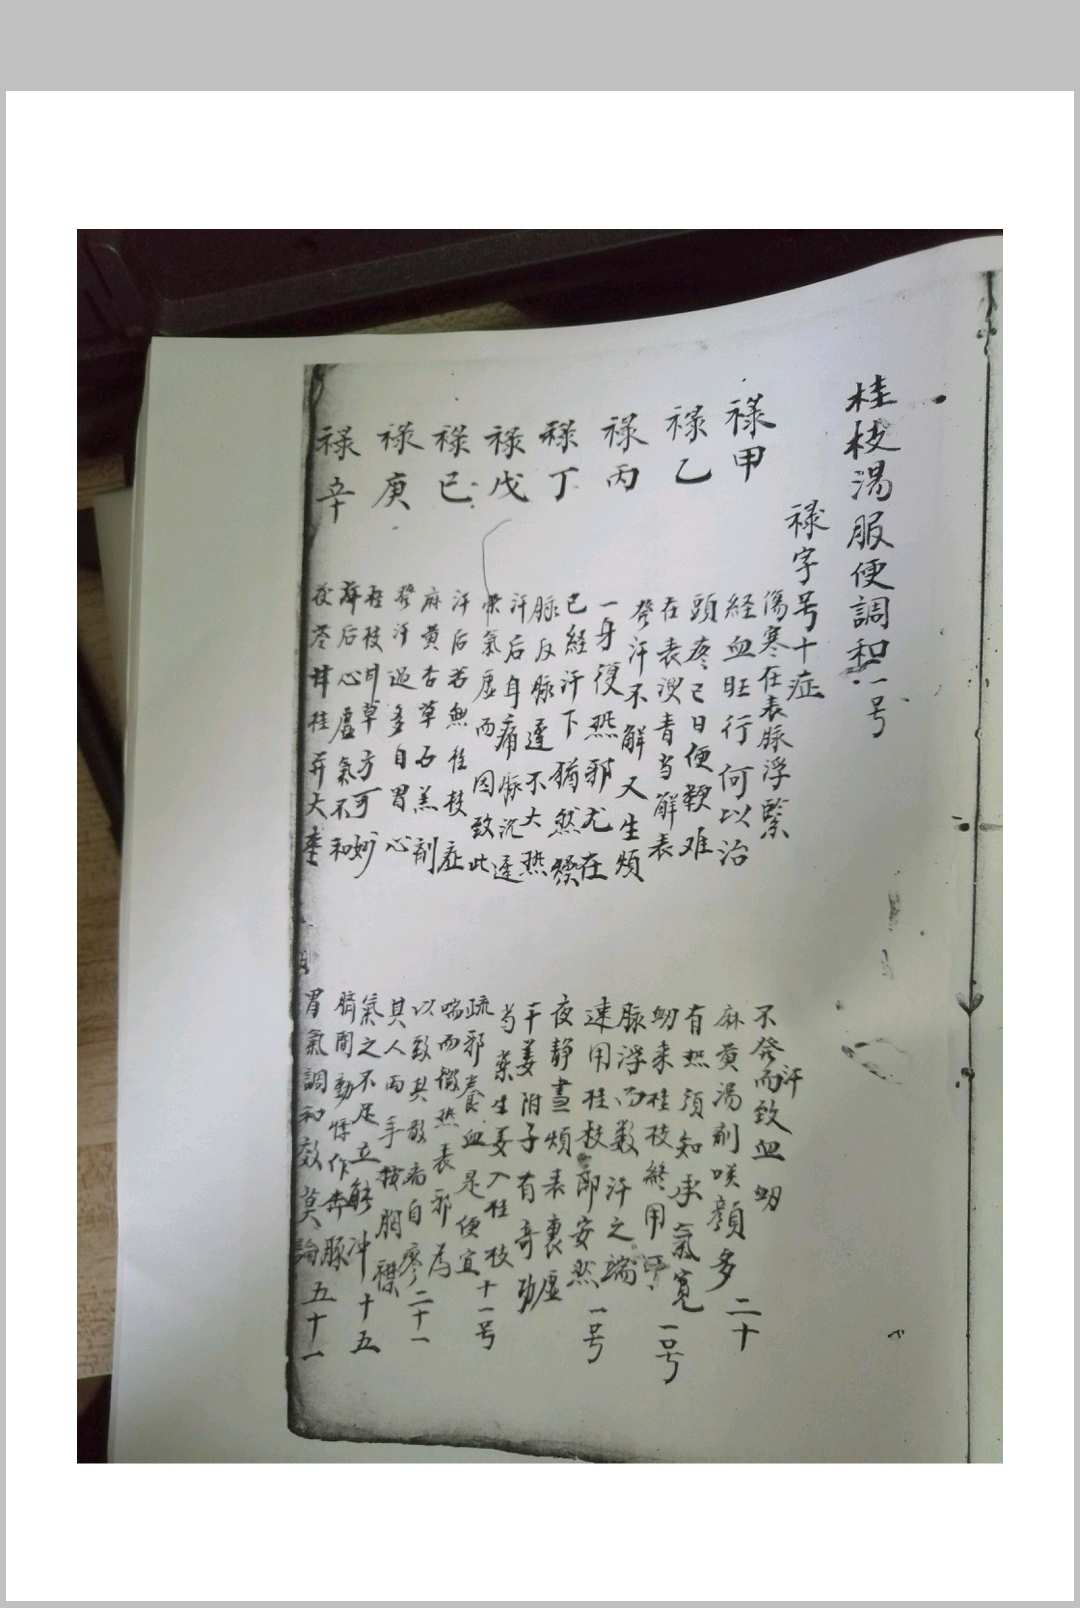 桂枝湯服便調和一号
禄字号十症
禄甲
傷寒在表脉浮緊
経血旺行何以治
不發汗而致血衂
麻黄湯剤咲顔多
二十
禄乙
頭疼已日便鞕难
在表溲青当解表
有热須知承氣寬
衂来桂枝終用
一号
禄丙
發汗不解又生煩
一身便热邪尤在
脉浮而数汗之端
速用桂枝即安然
一号
禄丁
已経汗下猶然燥
脉反脉遅不大热
夜静晝煩表裏虚
干姜附子有奇功
禄戊
汗后身痛脉沉遅
栄氣虚而因致此
芍薬生姜入桂枝
疏邪養血是便宜
十一号
禄已
汗后若無桂枝症
麻黄杏草石羔剤
喘而微热表邪為
以致其散病自廖
二十一
禄庚
發汗過多自冒心
桂枝甘草方可妙
其人两手按胸襟
氣之不足立解冲
十五
禄辛
汗后心虚氣不和
茯苓甘桂并大枣
臍間動悸作奔豚
胃氣調和效莫論
五十一